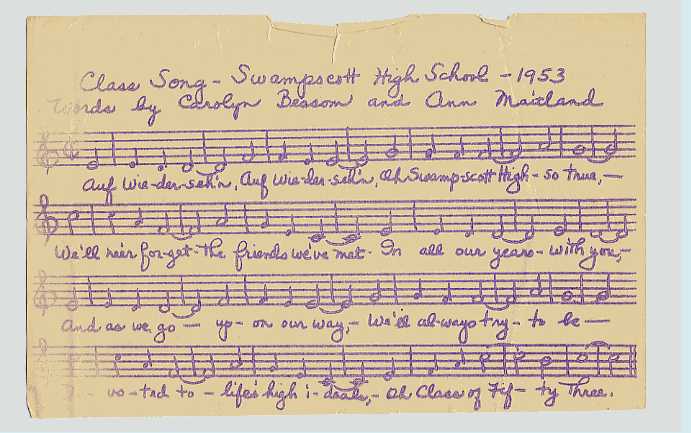 Class Song - Swampscott High School - 1953
Words by Carolyn Bessom and Ann Maitland
Auf Wie-der-seh'n, Auf Wie-der-seh'n, Oh Swamp-scott High - so true, -
We'll ne'er for-get - the friends we've met - In all our years - with you, -
And as we go - up - on our way, - We'll al-ways try - to be -
vo-ted to - life's high i-deals, - Oh Class of Fif - ty Three.